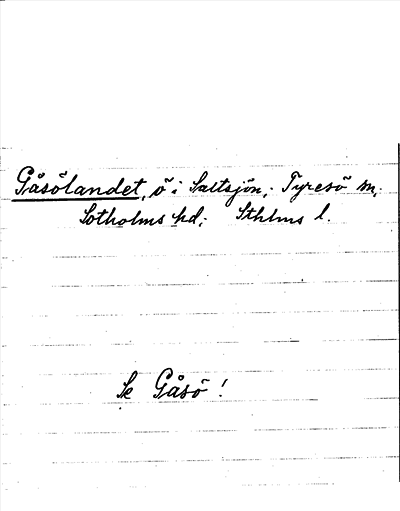 Gåsölandet, ö i Saltsjön; Tyresö sn;
Sotholms hd; Sthlms l.
Se Gåsö!